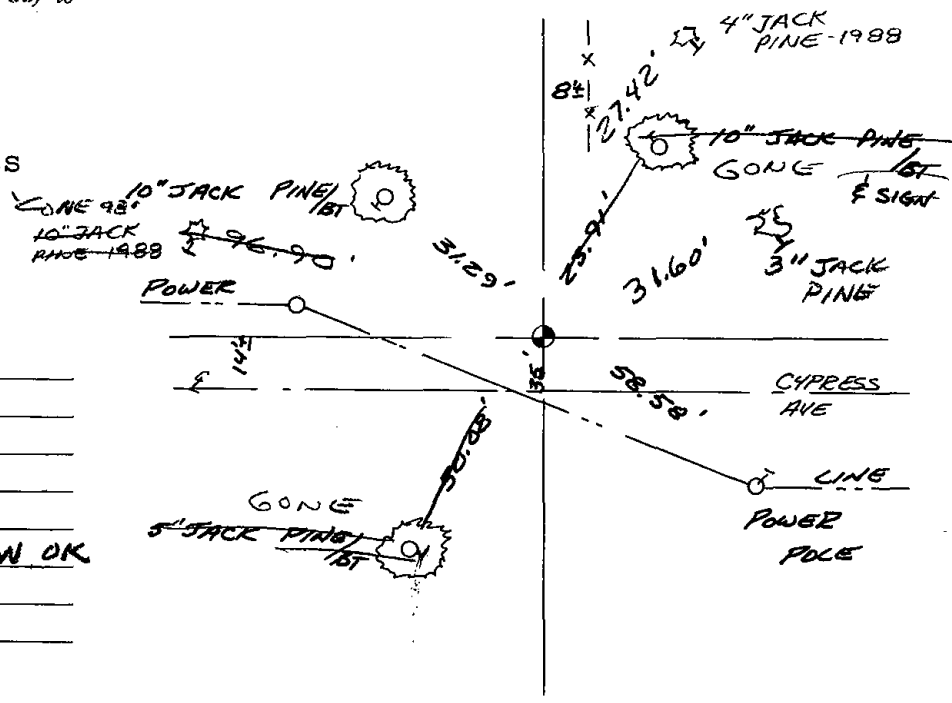 4" JACK
PINE-1988
8'±
27.42'
10" JACK PINE
/BT
GONE
& SIGN
S
GONE 98'
10" JACK PINE/BT
10" JACK
PINE 1988
96.90'
31.29'
31.60'
3" JACK
PINE
POWER
14'±
35'
58.58'
CYPRESS
AVE
50.08'
GONE
5" JACK PINE
/BT
LINE
POWER
POLE
OK